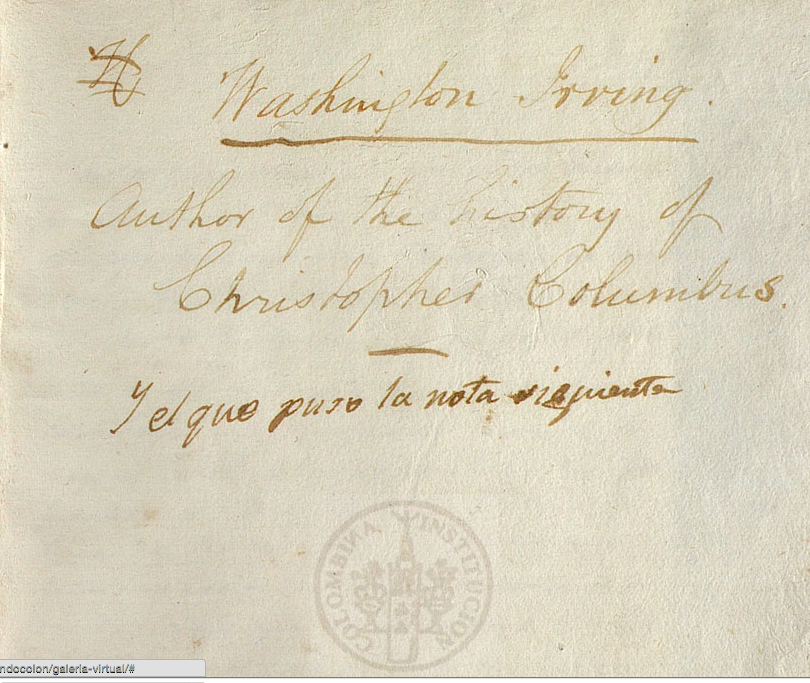 Washington Irving.
Author of the history of
Christopher Columbus.
Y el que puso la nota siguiente
INSTITUCION COLOMBINA
ndocolon/galeria-virtual/#